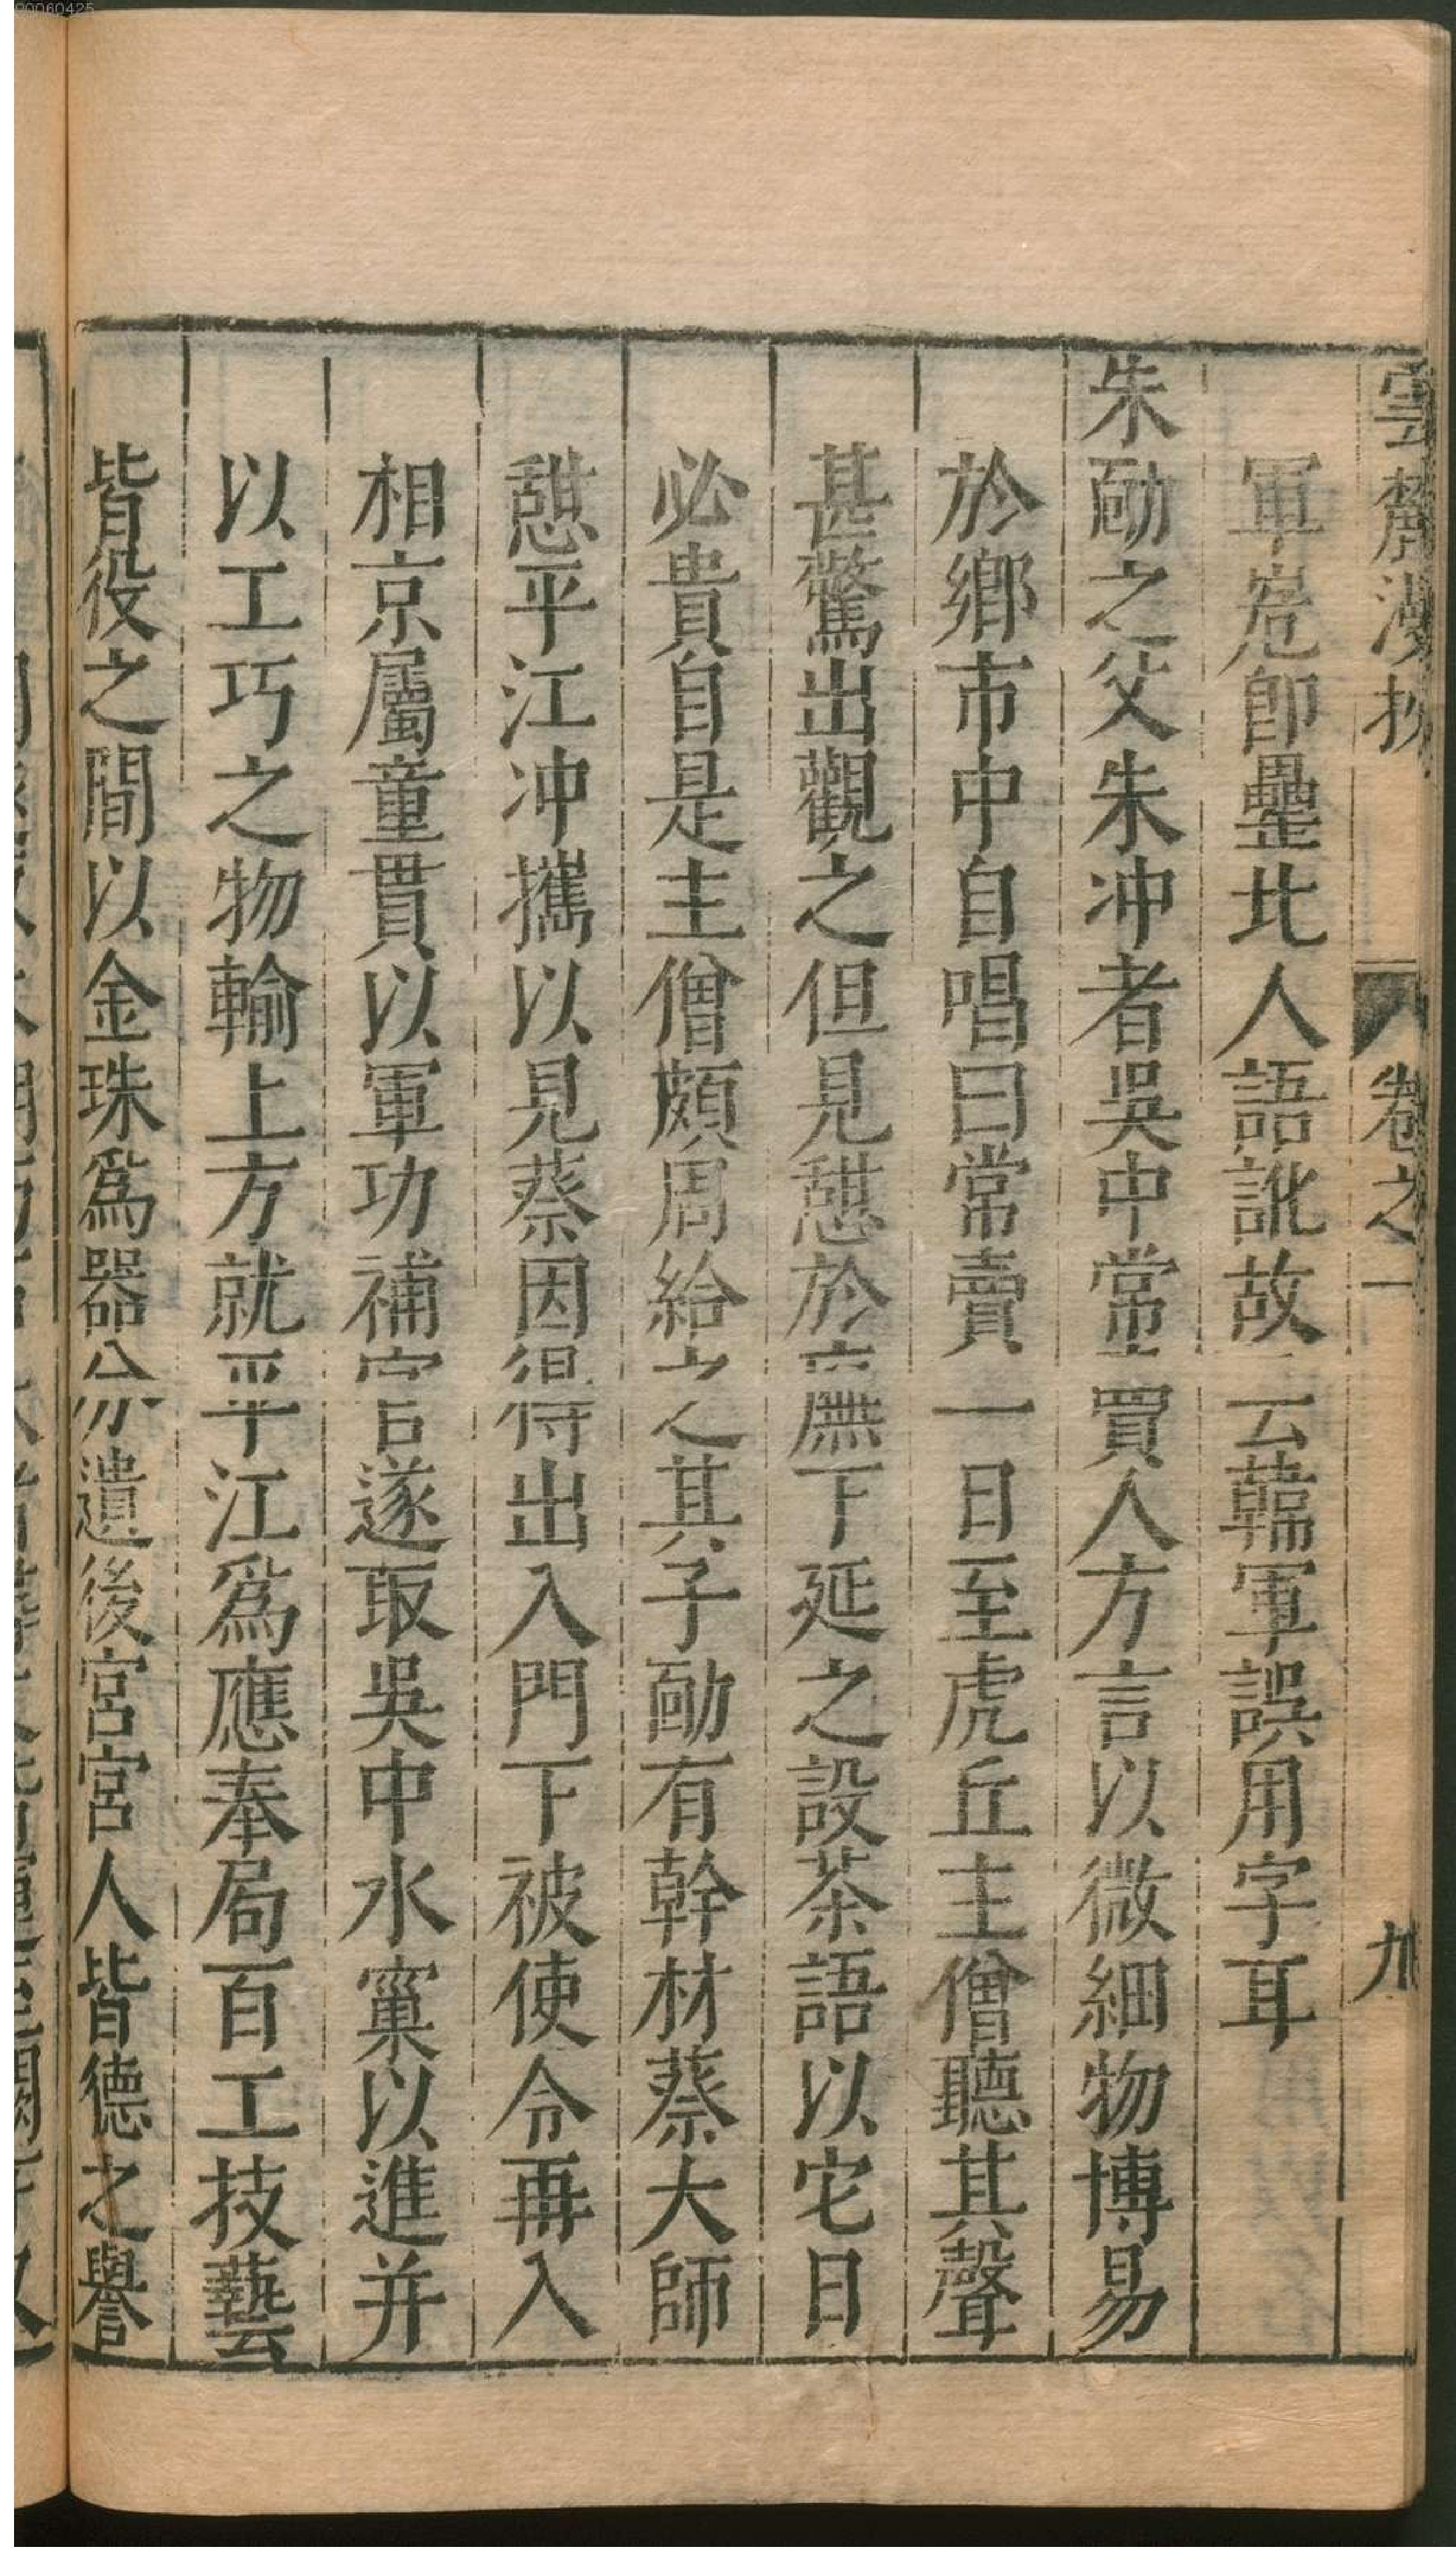 90060425
雲麓漫抄 卷之一 九
軍㞾卽壘北人語訛故云韓軍誤用字耳
朱勔之父朱冲者吳中常賣人方言以微細物博易
於鄉市中自唱曰常賣一日至虎丘主僧聽其聲
甚驚出觀之但見憇於廡下延之設茶語以它日
必貴自是主僧頗周給之其子勔有幹材蔡大師
憇平江冲攜以見蔡因得出入門下被使令再入
相京屬童貫以軍功補官遂取吳中水窠以進并
以工巧之物輸上方就平江爲應奉局百工技藝
皆役之間以金珠爲器分遺後宮宮人皆德之譽